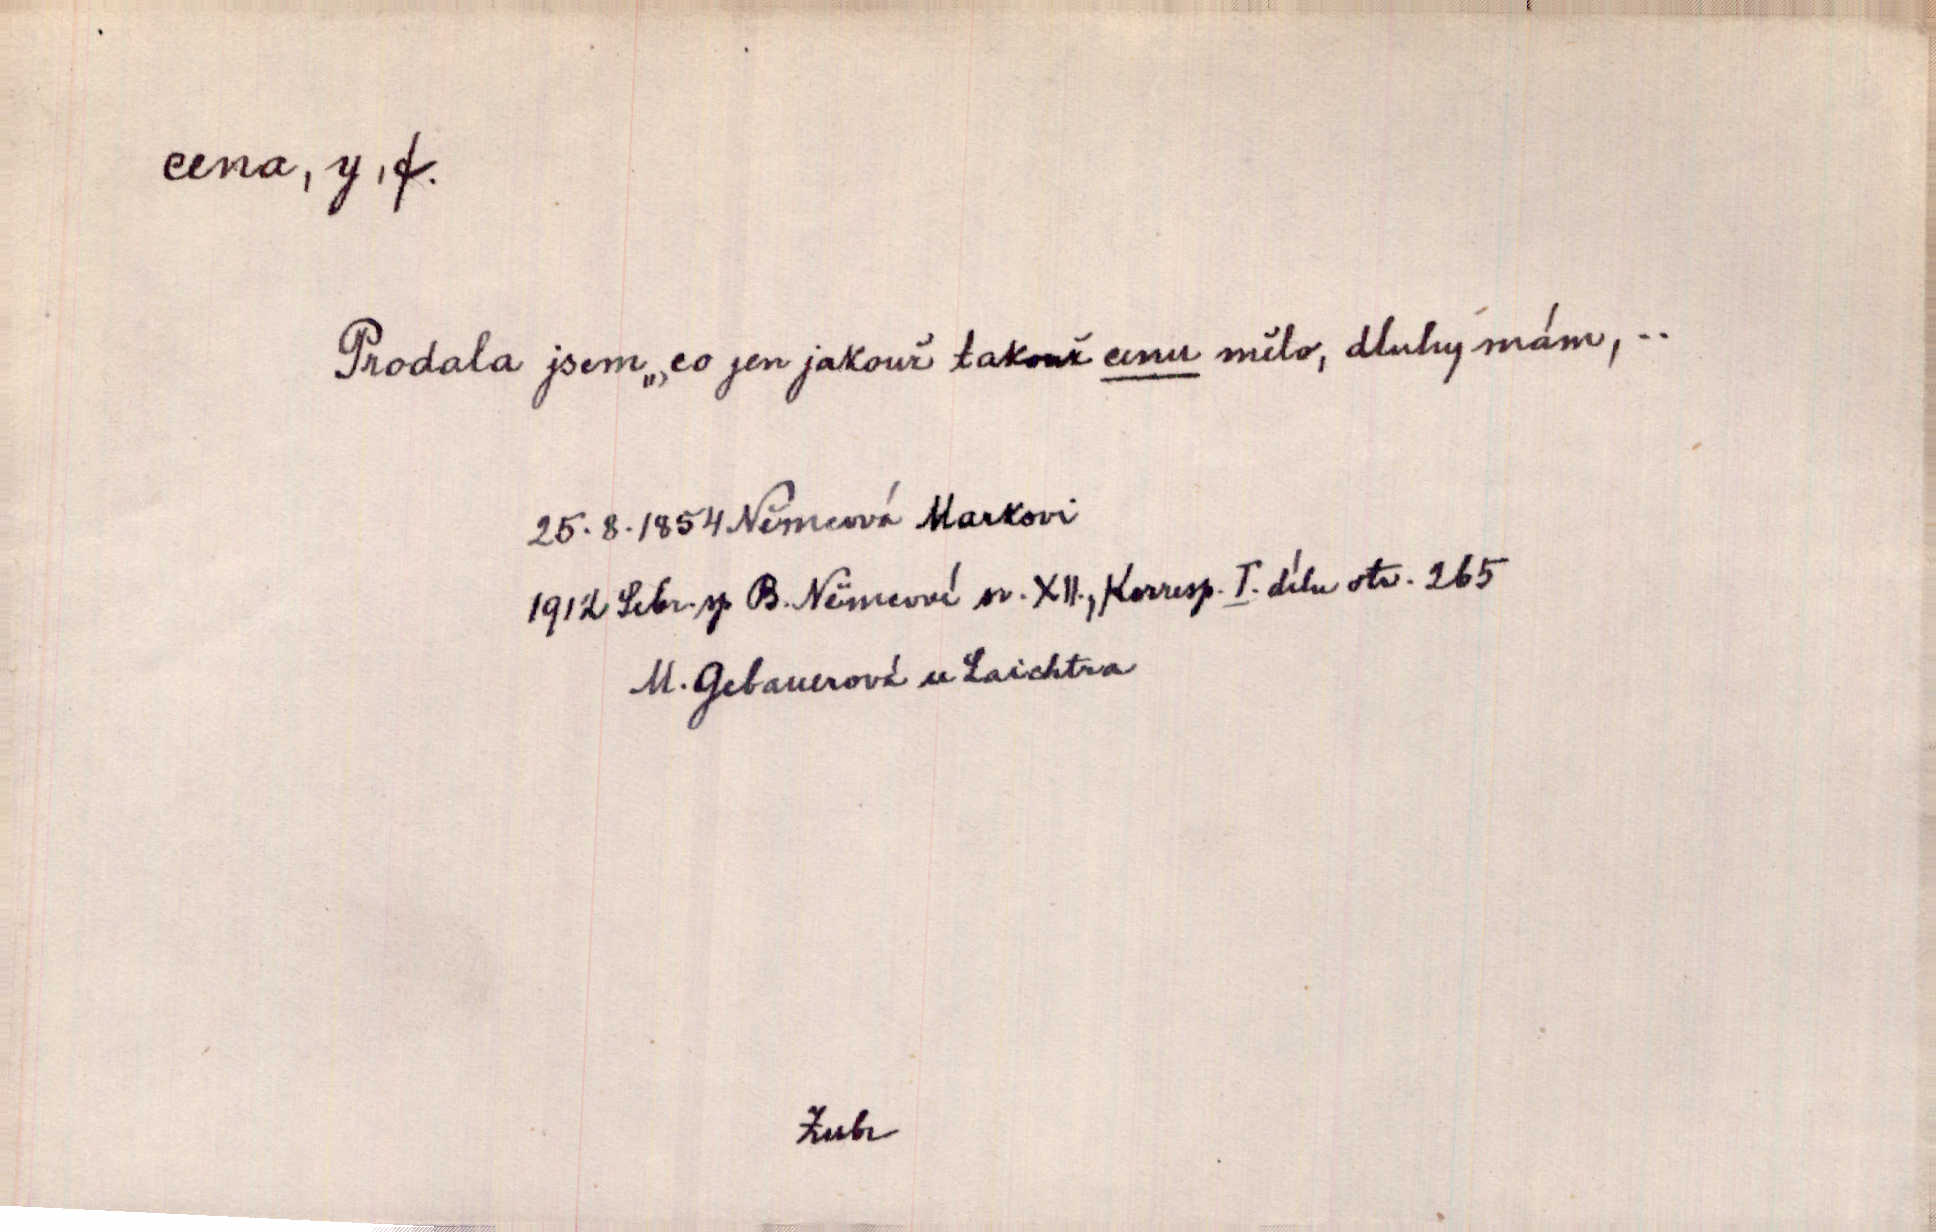 cena, y, f.
Prodala jsem,,, co jen jakouž takouž cenu mělo, dluhy mám, ..
25. 8. 1854 Němcová Markovi
1912 Sebr. sp B. Němcové sv. XII., Korresp. I. dílu str. 265
M. Gebauerová u Laichtra
Zubr